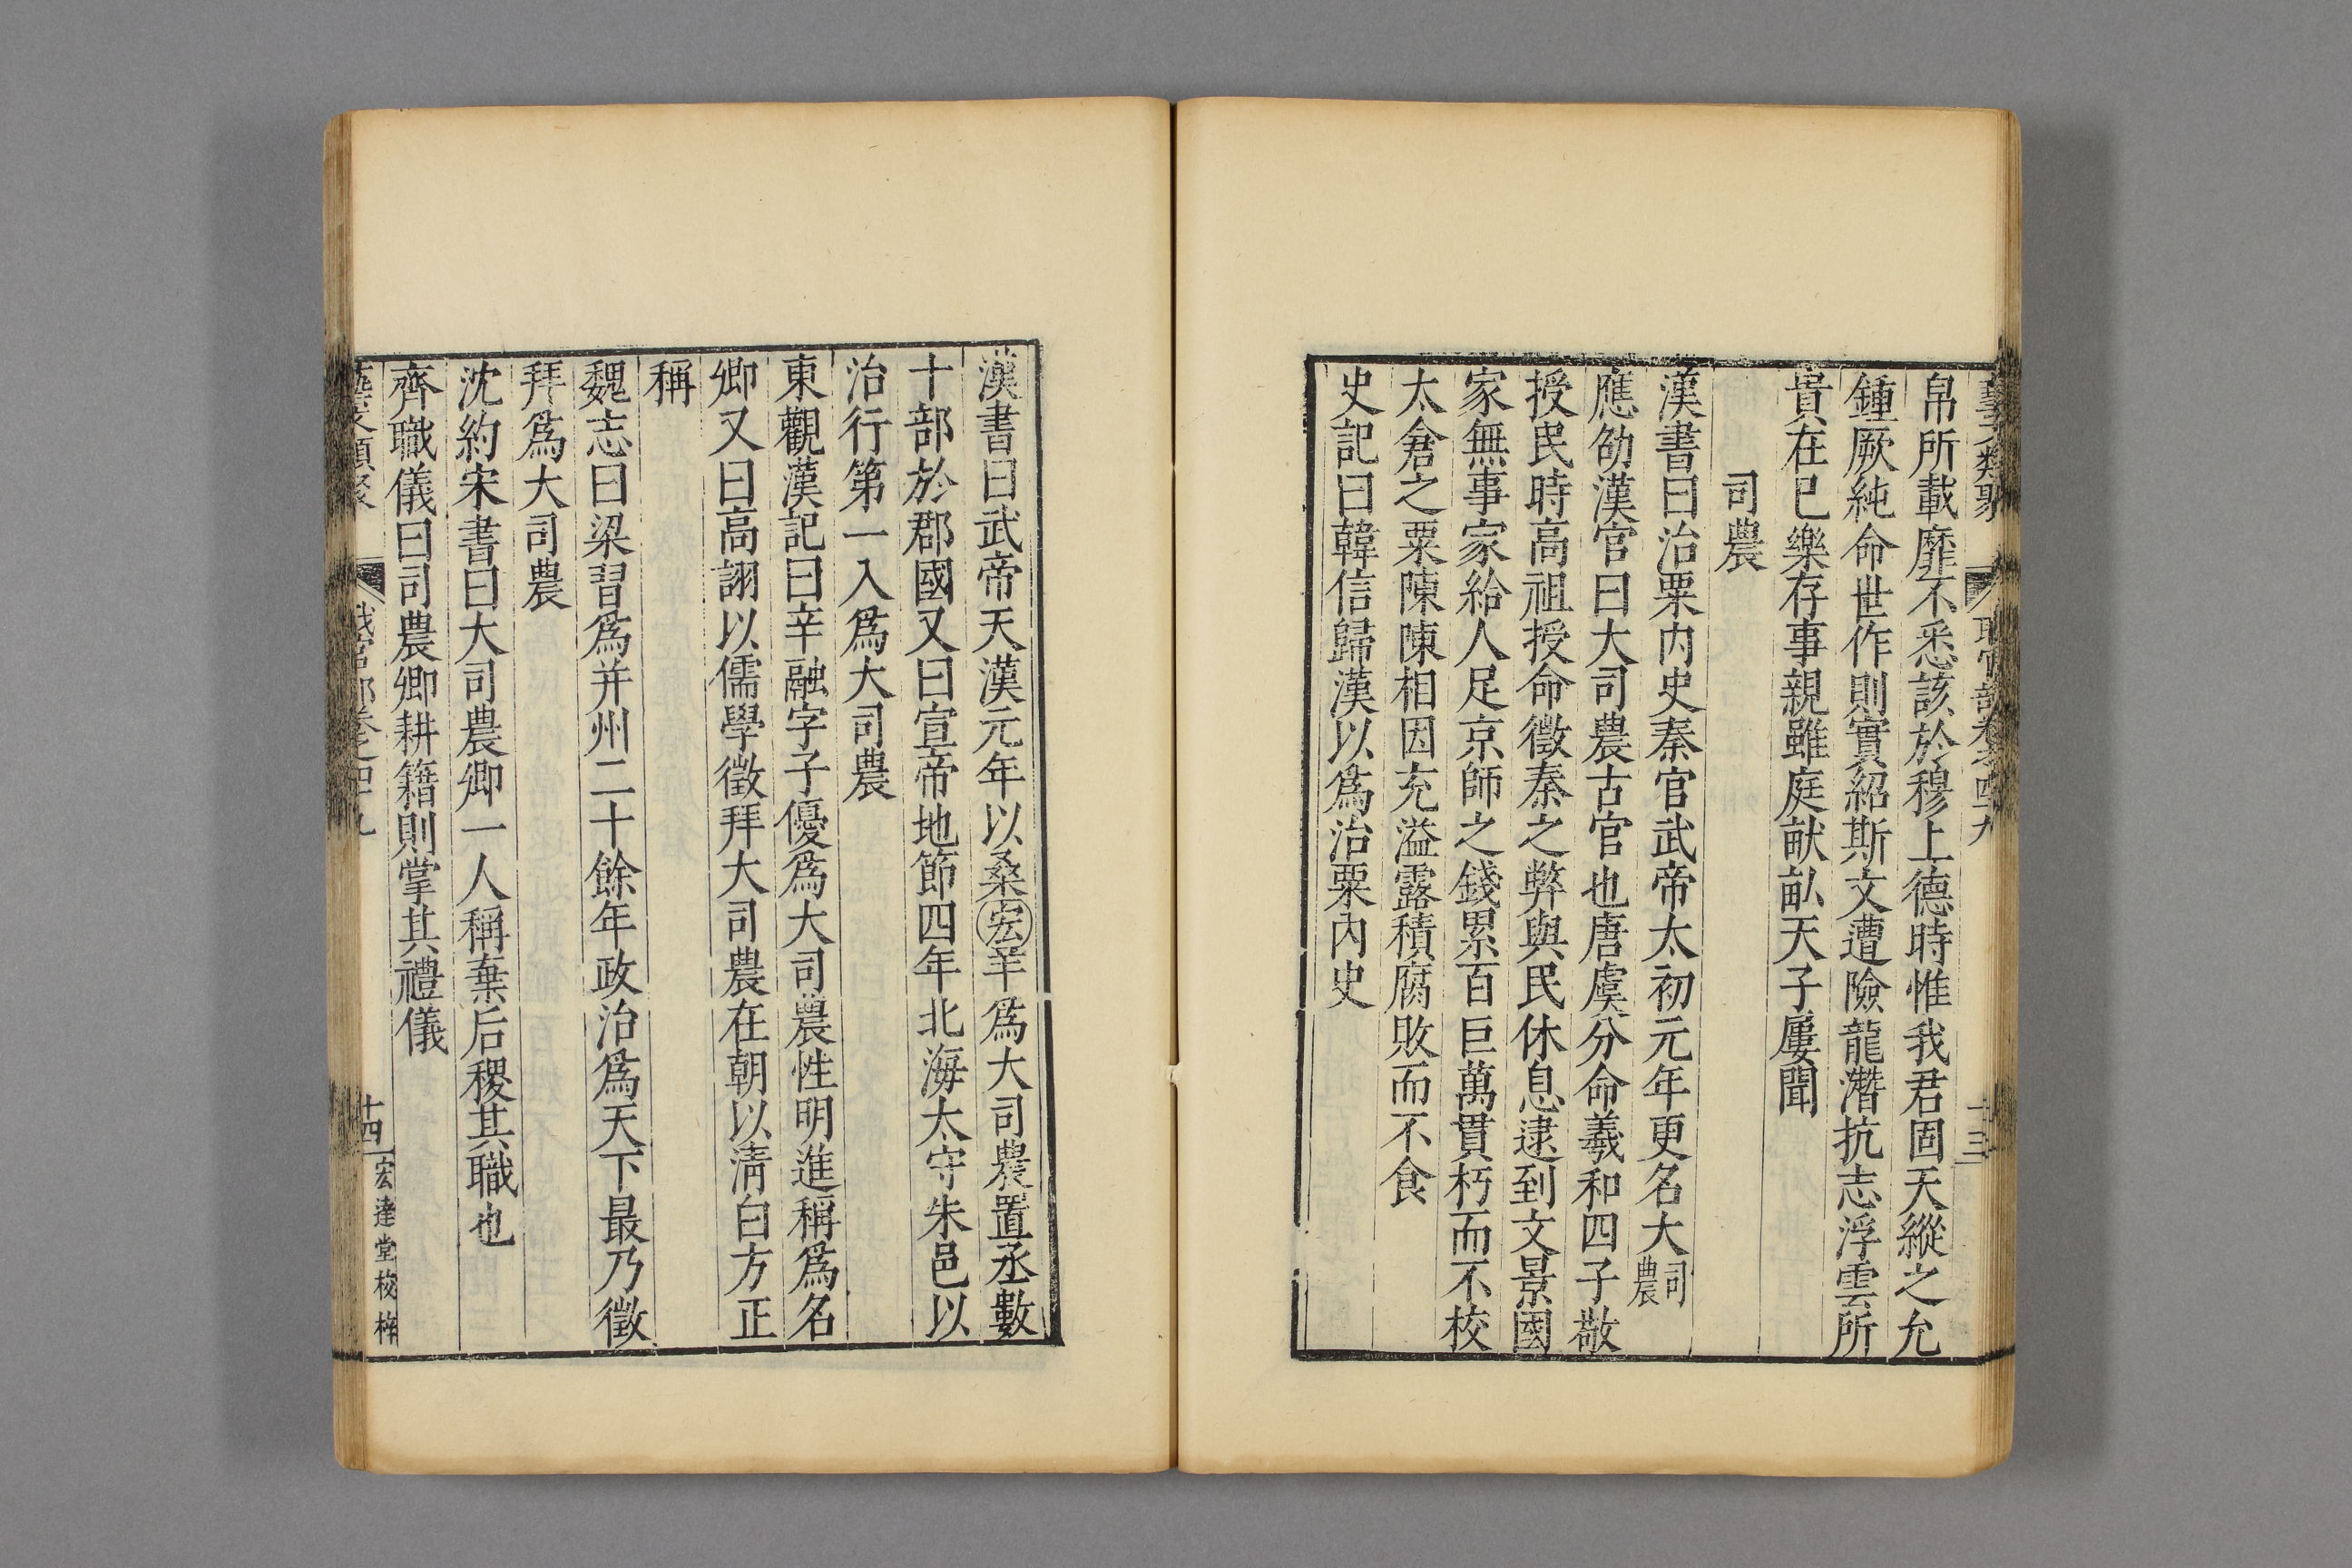 藝文類聚 職官部卷之四十九 十三
帛所載靡不悉該於穆上德時惟我君固天縱之允
鍾厥純命世作則實紹斯文遭險龍潛抗志浮雲所
貴在已樂存事親雖庭畎畝天子屢聞
司農
漢書曰治粟内史秦官武帝太初元年更名大司農
應劭漢官曰大司農古官也唐虞分命羲和四子敬
授民時高祖授命徵秦之弊與民休息逮到文景國
家無事家給人足京師之錢累百巨萬貫朽而不校
太倉之粟陳陳相因充溢露積腐敗而不食
史記曰韓信歸漢以爲治粟內史
漢書曰武帝天漢元年以桑宏羊爲大司農置丞數
十部於郡國又曰宣帝地節四年北海太守朱邑以
治行第一入爲大司農
東觀漢記曰辛融字子優爲大司農性明進稱爲名
卿又曰高詡以儒學徵拜大司農在朝以淸白方正
稱
魏志曰梁習爲并州二十餘年政治爲天下最乃徵
拜爲大司農
沈約宋書曰大司農卿一人稱棄后稷其職也
齊職儀曰司農卿耕籍則掌其禮儀
藝文類聚 職官部卷之四十九 十四 宏達堂校梓